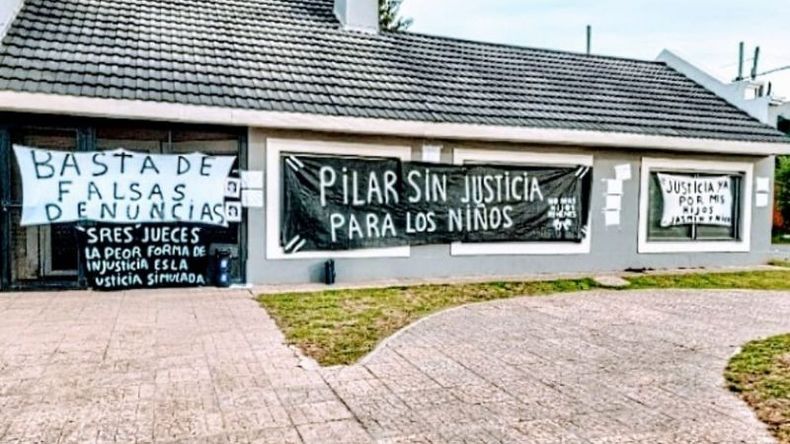 BASTA DE
FALSAS
DENUNCIAS
"SRES" JUECES
LA PEOR FORMA DE
INJUSTICIA ES LA
USTICIA SIMULADA
PILAR SIN JUSTICIA
PARA LOS NIÑOS
NO MAS
HIJOS
REHENES
"JUSTICIA YA
POR MIS
HIJOS
JASMIN Y